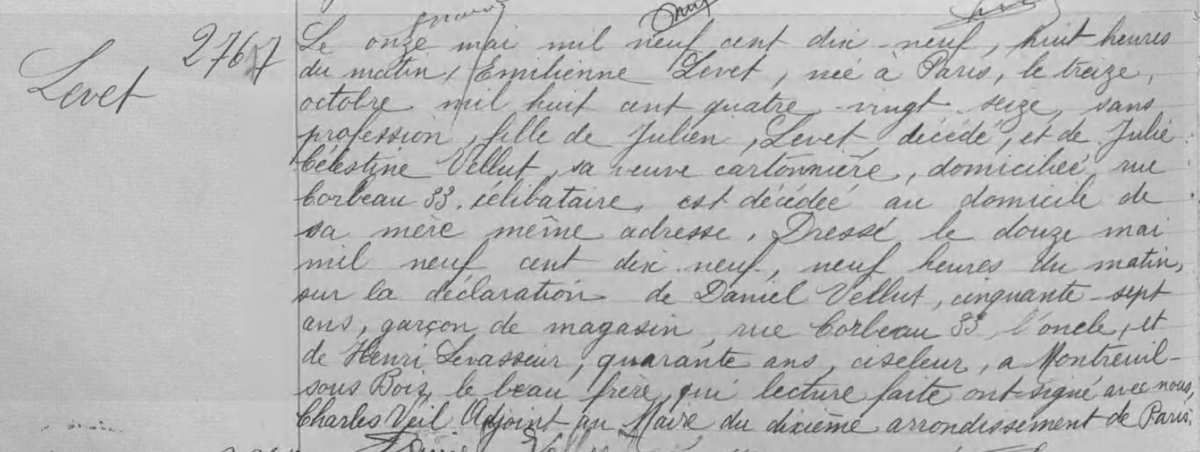 Levet
2767
Le onze mai mil neuf cent dix-neuf, huit heures
du matin, Emilienne Levet, née à Paris, le treize,
octobre mil huit cent quatre vingt seize, sans
profession, fille de Julien, Levet, décédé, et de Julie
Célestine Vellut, sa veuve cartonnière, domiciliée, rue
Corbeau 33. célibataire, est décédée au domicile de
sa mère même adresse. Dressé le douze mai
mil neuf cent dix neuf, neuf heures du matin,
sur la déclaration de Daniel Vellut, cinquante-sept
ans, garçon de magasin, rue Corbeau 33, l'oncle, et
de Henri Levasseur, quarante ans, ciseleur, a Montreuil-
sous Bois, le beau frère, qui lecture faite ont signé avec nous,
Charles Veil Adjoint au Maire du dixième arrondissement de Paris.